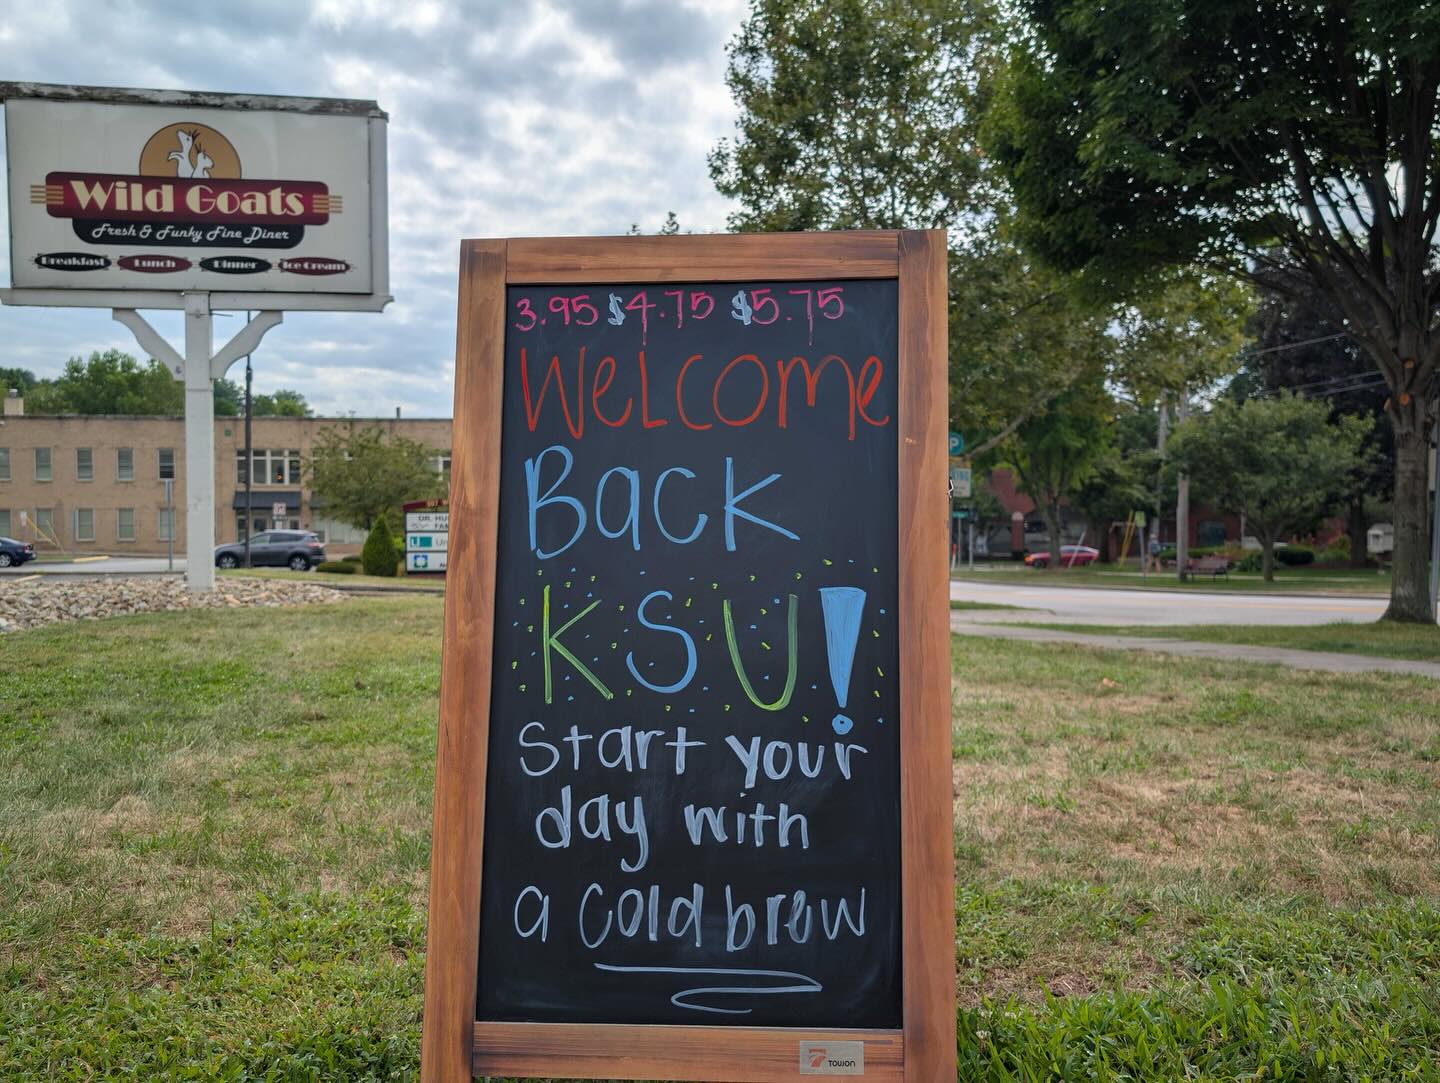 Wild Goats
Fresh & Funky Fine Diner
Breakfast Lunch Dinner Ice Cream
3.95 $4.75 $5.75
Welcome
Back
KSU!
Start your
day with
a cold brew
TOWON
P